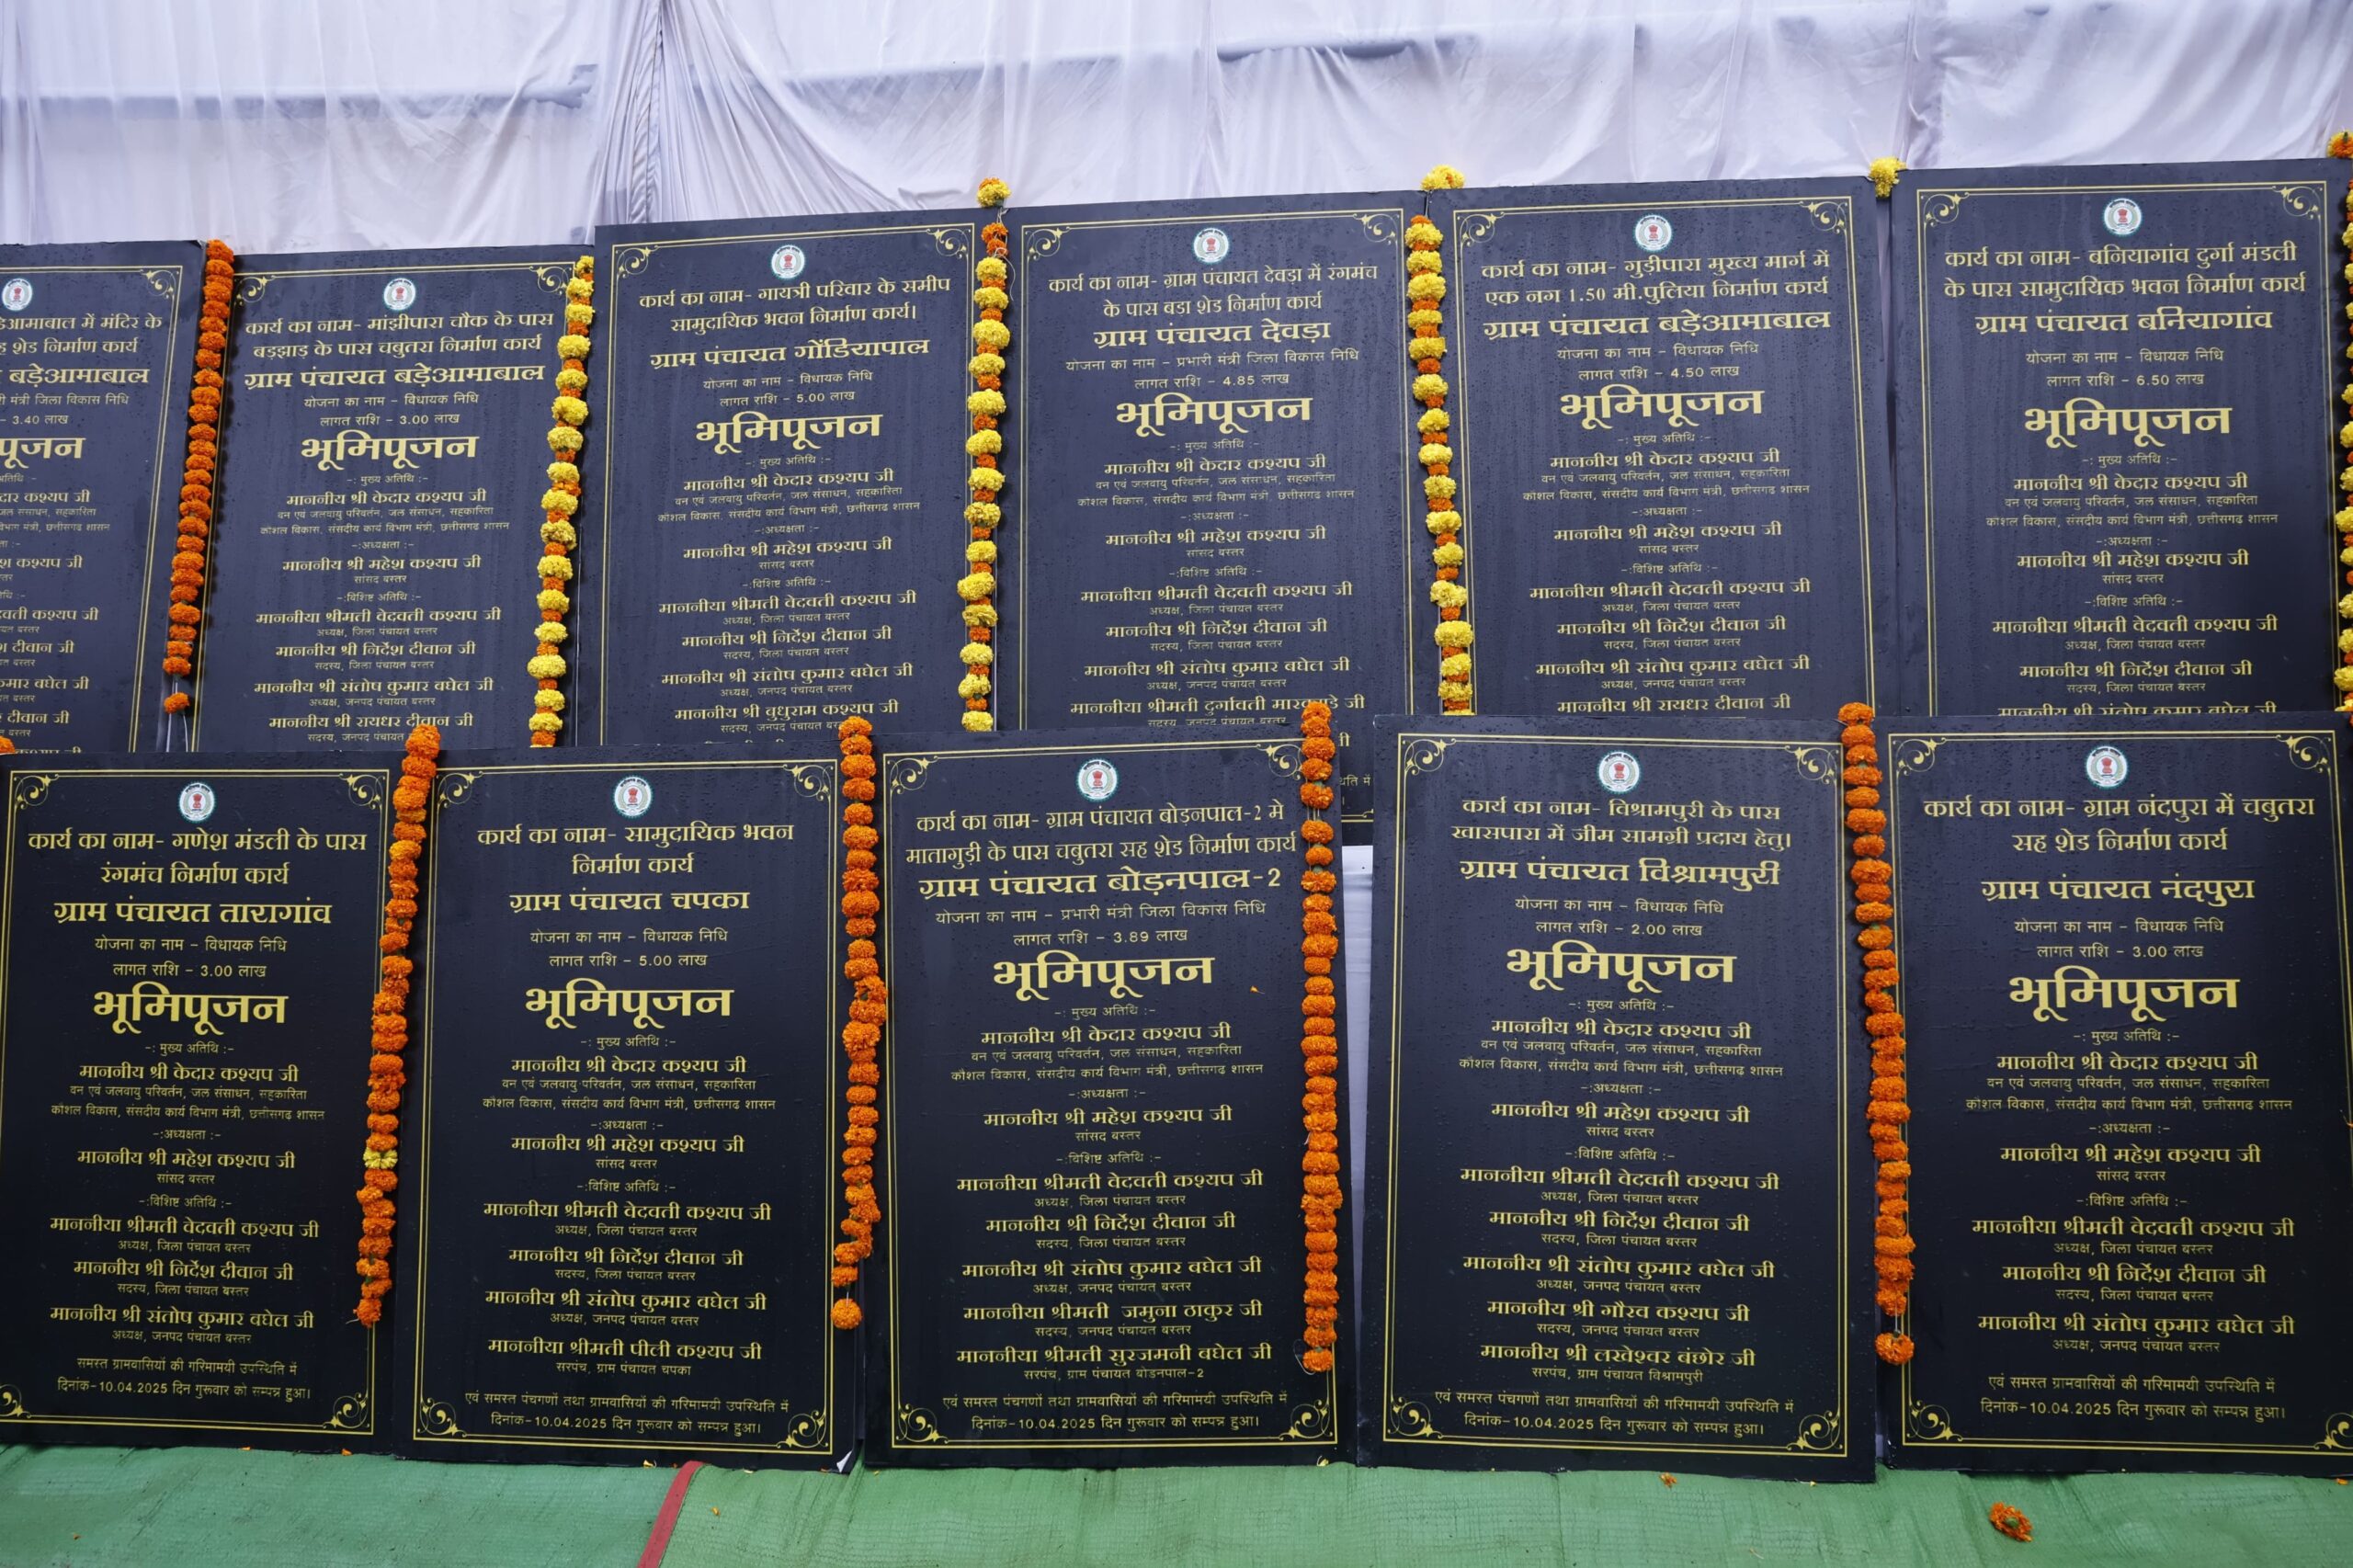 डेआमाबाल में मंदिर के
शेड निर्माण कार्य
बड़ेआमाबाल
मंत्री जिला विकास निधि
- 3.40 लाख
पूजन
कश्यप जी
जल संसाधन, सहकारिता
विभाग मंत्री, छत्तीसगढ शासन
कश्यप जी
कश्यप जी
दीवान जी
बघेल जी
दीवान जी
कार्य का नाम- मांझीपारा चौक के पास
बड़झाड़ के पास चबुतरा निर्माण कार्य
ग्राम पंचायत बड़ेआमाबाल
योजना का नाम – विधायक निधि
लागत राशि – 3.00 लाख
भूमिपूजन
-: मुख्य अतिथि :-
माननीय श्री केदार कश्यप जी
वन एवं जलवायु परिवर्तन, जल संसाधन, सहकारिता
कौशल विकास, संसदीय कार्य विभाग मंत्री, छत्तीसगढ शासन
-:अध्यक्षता :-
माननीय श्री महेश कश्यप जी
सांसद बस्तर
-:विशिष्ट अतिथि :-
माननीया श्रीमती वेदवती कश्यप जी
अध्यक्ष, जिला पंचायत बस्तर
माननीय श्री निर्देश दीवान जी
सदस्य, जिला पंचायत बस्तर
माननीय श्री संतोष कुमार बघेल जी
अध्यक्ष, जनपद पंचायत बस्तर
माननीय श्री रायधर दीवान जी
सदस्य, जनपद पंचायत
कार्य का नाम- गायत्री परिवार के समीप
सामुदायिक भवन निर्माण कार्य।
ग्राम पंचायत गोंडियापाल
योजना का नाम – विधायक निधि
लागत राशि – 5.00 लाख
भूमिपूजन
-: मुख्य अतिथि :-
माननीय श्री केदार कश्यप जी
वन एवं जलवायु परिवर्तन, जल संसाधन, सहकारिता
कौशल विकास, संसदीय कार्य विभाग मंत्री, छत्तीसगढ शासन
-:अध्यक्षता :-
माननीय श्री महेश कश्यप जी
सांसद बस्तर
-:विशिष्ट अतिथि :-
माननीया श्रीमती वेदवती कश्यप जी
अध्यक्ष, जिला पंचायत बस्तर
माननीय श्री निर्देश दीवान जी
सदस्य, जिला पंचायत बस्तर
माननीय श्री संतोष कुमार बघेल जी
अध्यक्ष, जनपद पंचायत बस्तर
माननीय श्री बुधुराम कश्यप जी
सदस्य, जनपद पंचायत
कार्य का नाम- ग्राम पंचायत देवड़ा में रंगमंच
के पास बडा शेड निर्माण कार्य
ग्राम पंचायत देवड़ा
योजना का नाम – प्रभारी मंत्री जिला विकास निधि
लागत राशि – 4.85 लाख
भूमिपूजन
-: मुख्य अतिथि :-
माननीय श्री केदार कश्यप जी
वन एवं जलवायु परिवर्तन, जल संसाधन, सहकारिता
कौशल विकास, संसदीय कार्य विभाग मंत्री, छत्तीसगढ शासन
-:अध्यक्षता :-
माननीय श्री महेश कश्यप जी
सांसद बस्तर
-:विशिष्ट अतिथि :-
माननीया श्रीमती वेदवती कश्यप जी
अध्यक्ष, जिला पंचायत बस्तर
माननीय श्री निर्देश दीवान जी
सदस्य, जिला पंचायत बस्तर
माननीय श्री संतोष कुमार बघेल जी
अध्यक्ष, जनपद पंचायत बस्तर
माननीया श्रीमती दुर्गावती जी
सदस्य, जनपद पंचायत बस्तर
कार्य का नाम- गुड़ीपारा मुख्य मार्ग में
एक नग 1.50 मी.पुलिया निर्माण कार्य
ग्राम पंचायत बड़ेआमाबाल
योजना का नाम – विधायक निधि
लागत राशि – 4.50 लाख
भूमिपूजन
-: मुख्य अतिथि :-
माननीय श्री केदार कश्यप जी
वन एवं जलवायु परिवर्तन, जल संसाधन, सहकारिता
कौशल विकास, संसदीय कार्य विभाग मंत्री, छत्तीसगढ शासन
-:अध्यक्षता :-
माननीय श्री महेश कश्यप जी
सांसद बस्तर
-:विशिष्ट अतिथि :-
माननीया श्रीमती वेदवती कश्यप जी
अध्यक्ष, जिला पंचायत बस्तर
माननीय श्री निर्देश दीवान जी
सदस्य, जिला पंचायत बस्तर
माननीय श्री संतोष कुमार बघेल जी
अध्यक्ष, जनपद पंचायत बस्तर
माननीय श्री रायधर दीवान जी
कार्य का नाम- बनियागांव दुर्गा मंडली
के पास सामुदायिक भवन निर्माण कार्य
ग्राम पंचायत बनियागांव
योजना का नाम – विधायक निधि
लागत राशि – 6.50 लाख
भूमिपूजन
-: मुख्य अतिथि :-
माननीय श्री केदार कश्यप जी
वन एवं जलवायु परिवर्तन, जल संसाधन, सहकारिता
कौशल विकास, संसदीय कार्य विभाग मंत्री, छत्तीसगढ शासन
-:अध्यक्षता :-
माननीय श्री महेश कश्यप जी
सांसद बस्तर
-:विशिष्ट अतिथि :-
माननीया श्रीमती वेदवती कश्यप जी
अध्यक्ष, जिला पंचायत बस्तर
माननीय श्री निर्देश दीवान जी
सदस्य, जिला पंचायत बस्तर
माननीय श्री संतोष कुमार बघेल जी
कार्य का नाम- गणेश मंडली के पास
रंगमंच निर्माण कार्य
ग्राम पंचायत तारागांव
योजना का नाम – विधायक निधि
लागत राशि – 3.00 लाख
भूमिपूजन
-: मुख्य अतिथि :-
माननीय श्री केदार कश्यप जी
वन एवं जलवायु परिवर्तन, जल संसाधन, सहकारिता
कौशल विकास, संसदीय कार्य विभाग मंत्री, छत्तीसगढ शासन
-:अध्यक्षता :-
माननीय श्री महेश कश्यप जी
सांसद बस्तर
-:विशिष्ट अतिथि :-
माननीया श्रीमती वेदवती कश्यप जी
अध्यक्ष, जिला पंचायत बस्तर
माननीय श्री निर्देश दीवान जी
सदस्य, जिला पंचायत बस्तर
माननीय श्री संतोष कुमार बघेल जी
अध्यक्ष, जनपद पंचायत बस्तर
समस्त ग्रामवासियों की गरिमामयी उपस्थिति में
दिनांक-10.04.2025 दिन गुरूवार को सम्पन्न हुआ।
कार्य का नाम- सामुदायिक भवन
निर्माण कार्य
ग्राम पंचायत चपका
योजना का नाम – विधायक निधि
लागत राशि – 5.00 लाख
भूमिपूजन
-: मुख्य अतिथि :-
माननीय श्री केदार कश्यप जी
वन एवं जलवायु परिवर्तन, जल संसाधन, सहकारिता
कौशल विकास, संसदीय कार्य विभाग मंत्री, छत्तीसगढ शासन
-:अध्यक्षता :-
माननीय श्री महेश कश्यप जी
सांसद बस्तर
-:विशिष्ट अतिथि :-
माननीया श्रीमती वेदवती कश्यप जी
अध्यक्ष, जिला पंचायत बस्तर
माननीय श्री निर्देश दीवान जी
सदस्य, जिला पंचायत बस्तर
माननीय श्री संतोष कुमार बघेल जी
अध्यक्ष, जनपद पंचायत बस्तर
माननीय श्रीमती पीली कश्यप जी
सरपंच, ग्राम पंचायत चपका
एवं समस्त पंचगणों तथा ग्रामवासियों की गरिमामयी उपस्थिति में
दिनांक-10.04.2025 दिन गुरूवार को सम्पन्न हुआ।
कार्य का नाम- ग्राम पंचायत बोड़नपाल-2 मे
मातागुड़ी के पास चबुतरा सह शेड निर्माण कार्य
ग्राम पंचायत बोड़नपाल-2
योजना का नाम – प्रभारी मंत्री जिला विकास निधि
लागत राशि – 3.89 लाख
भूमिपूजन
-: मुख्य अतिथि :-
माननीय श्री केदार कश्यप जी
वन एवं जलवायु परिवर्तन, जल संसाधन, सहकारिता
कौशल विकास, संसदीय कार्य विभाग मंत्री, छत्तीसगढ शासन
-:अध्यक्षता :-
माननीय श्री महेश कश्यप जी
सांसद बस्तर
-:विशिष्ट अतिथि :-
माननीया श्रीमती वेदवती कश्यप जी
अध्यक्ष, जिला पंचायत बस्तर
माननीय श्री निर्देश दीवान जी
सदस्य, जिला पंचायत बस्तर
माननीय श्री संतोष कुमार बघेल जी
अध्यक्ष, जनपद पंचायत बस्तर
माननीया श्रीमती जमुना ठाकुर जी
सदस्य, जनपद पंचायत बस्तर
माननीया श्रीमती सुरजमनी बघेल जी
सरपंच, ग्राम पंचायत बोडनपाल-2
एवं समस्त पंचगणों तथा ग्रामवासियों की गरिमामयी उपस्थिति में
दिनांक-10.04.2025 दिन गुरूवार को सम्पन्न हुआ।
कार्य का नाम- विश्रामपुरी के पास
खासपारा में जीम सामग्री प्रदाय हेतु।
ग्राम पंचायत विश्रामपुरी
योजना का नाम – विधायक निधि
लागत राशि – 2.00 लाख
भूमिपूजन
-: मुख्य अतिथि :-
माननीय श्री केदार कश्यप जी
वन एवं जलवायु परिवर्तन, जल संसाधन, सहकारिता
कौशल विकास, संसदीय कार्य विभाग मंत्री, छत्तीसगढ शासन
-:अध्यक्षता :-
माननीय श्री महेश कश्यप जी
सांसद बस्तर
-:विशिष्ट अतिथि :-
माननीया श्रीमती वेदवती कश्यप जी
अध्यक्ष, जिला पंचायत बस्तर
माननीय श्री निर्देश दीवान जी
सदस्य, जिला पंचायत बस्तर
माननीय श्री संतोष कुमार बघेल जी
अध्यक्ष, जनपद पंचायत बस्तर
माननीय श्री गौरव कश्यप जी
सदस्य, जनपद पंचायत बस्तर
माननीय श्री लखेश्वर बंछोर जी
सरपंच, ग्राम पंचायत विश्रामपुरी
एवं समस्त पंचगणों तथा ग्रामवासियों की गरिमामयी उपस्थिति में
दिनांक-10.04.2025 दिन गुरूवार को सम्पन्न हुआ।
कार्य का नाम- ग्राम नंदपुरा में चबुतरा
सह शेड निर्माण कार्य
ग्राम पंचायत नंदपुरा
योजना का नाम – विधायक निधि
लागत राशि – 3.00 लाख
भूमिपूजन
-: मुख्य अतिथि :-
माननीय श्री केदार कश्यप जी
वन एवं जलवायु परिवर्तन, जल संसाधन, सहकारिता
कौशल विकास, संसदीय कार्य विभाग मंत्री, छत्तीसगढ शासन
-:अध्यक्षता :-
माननीय श्री महेश कश्यप जी
सांसद बस्तर
-:विशिष्ट अतिथि :-
माननीया श्रीमती वेदवती कश्यप जी
अध्यक्ष, जिला पंचायत बस्तर
माननीय श्री निर्देश दीवान जी
सदस्य, जिला पंचायत बस्तर
माननीय श्री संतोष कुमार बघेल जी
अध्यक्ष, जनपद पंचायत बस्तर
एवं समस्त ग्रामवासियों की गरिमामयी उपस्थिति में
दिनांक-10.04.2025 दिन गुरूवार को सम्पन्न हुआ।